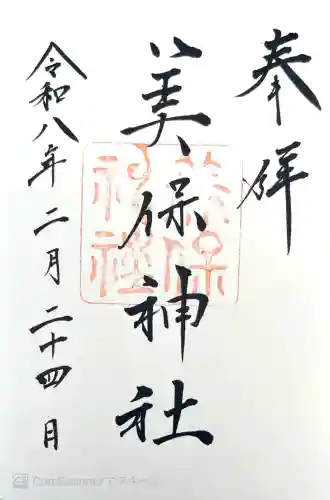 奉拝
美保神社
令和八年二月二十四月
美保
神社
CamScannerでスキャン